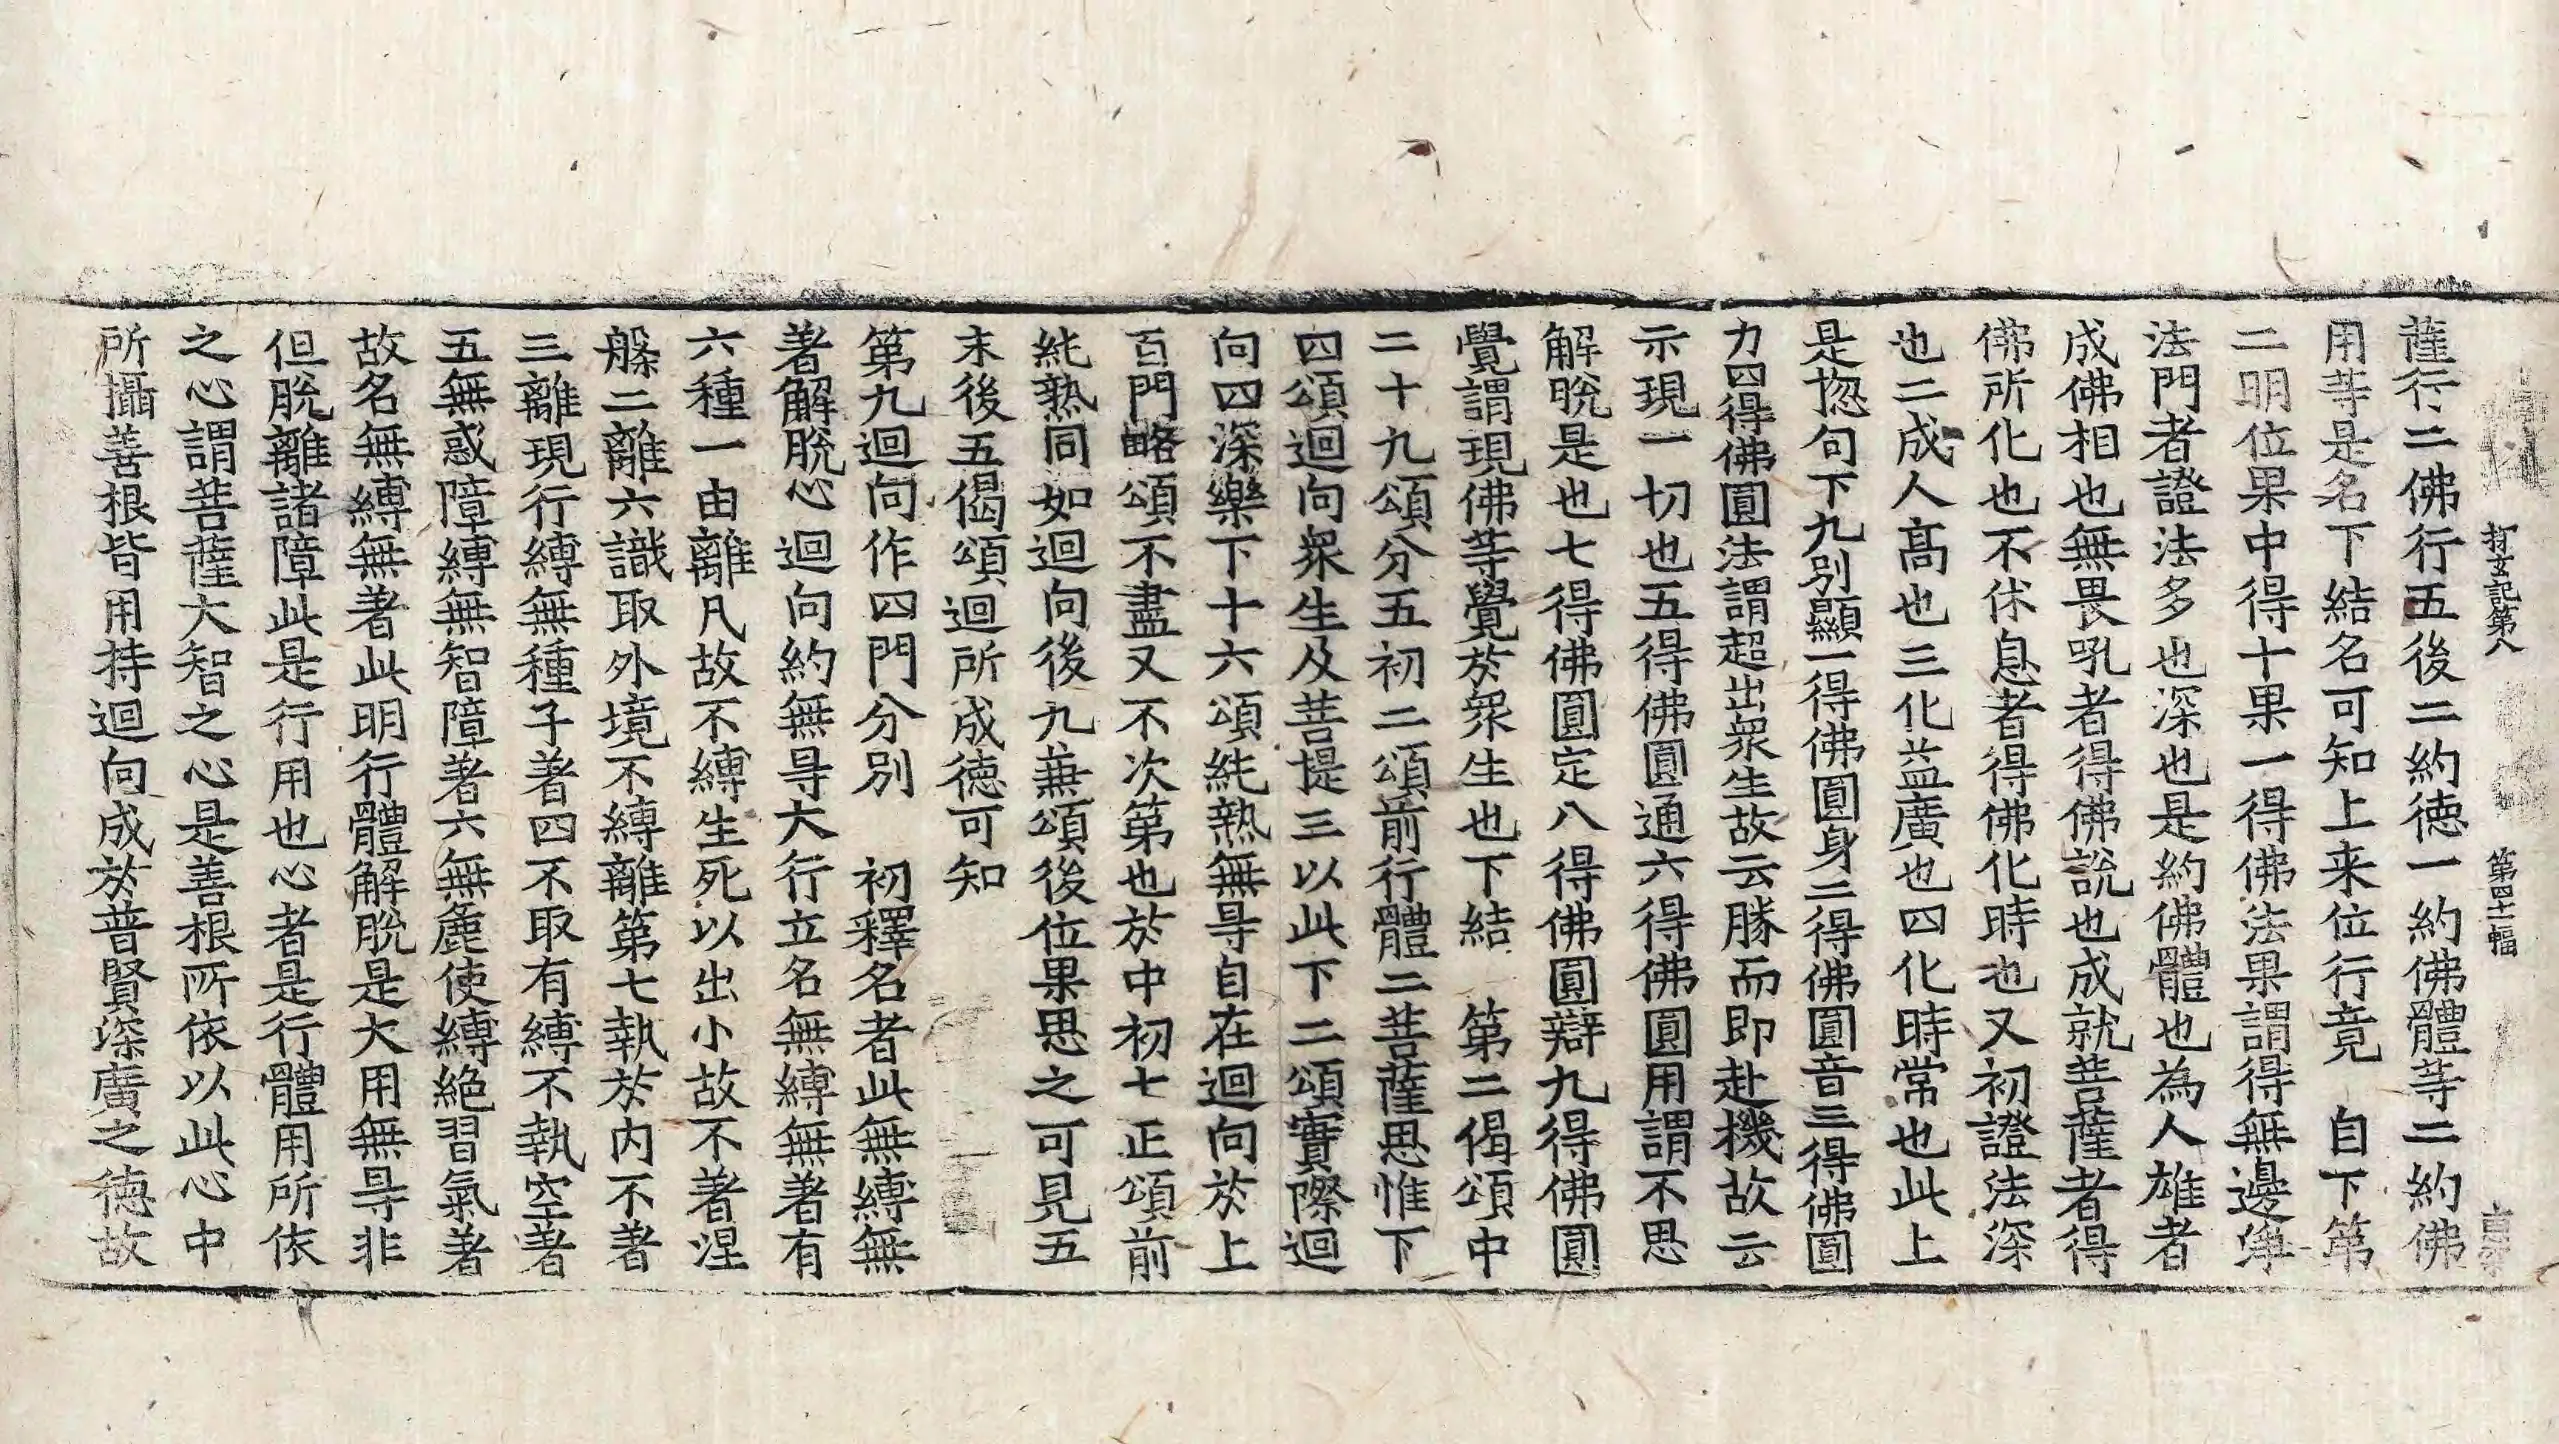 打玄記第八 第四十二幅
薩行二佛行五後二約徳一約佛體等二約佛
用等是名下結名可知上来位行竟 自下第
二明位果中得十果一得佛法果謂得無邊淨
法門者證法多也深也是約佛體也為人雄者
成佛相也無畏吼者得佛說也成就菩薩者得
佛所化也不休息者得佛化時也又初證法深
也二成人髙也三化益廣也四化時常也此上
是惣句下九別顯一得佛圓身二得佛圓音三得佛圓
力四得佛圓法謂超出衆生故云勝而即赴機故云
示現一切也五得佛圓通六得佛圓用謂不思
解脫是也七得佛圓定八得佛圓辯九得佛圓
覺謂現佛等覺於衆生也下結 第二偈頌中
二十九頌分五初二頌前行體二菩薩思惟下
四頌迴向衆生及菩提三以此下二頌實際迴
向四深樂下十六頌純熟無㝵自在迴向於上
百門略頌不盡又不次第也於中初七正頌前
純熟同如迴向後九兼頌後位果思之可見五
末後五偈頌迴所成徳可知
第九迴向作四門分別 初釋名者此無縛無
著解脫心迴向約無㝵大行立名無縛無著有
六種一由離凡故不縛生死以出小故不著涅
槃二離六識取外境不縛離第七執於内不著
三離現行縛無種子著四不取有縛不執空著
五無惑障縛無智障著六無麁使縛絶習氣著
故名無縛無著此明行體解脫是大用無㝵非
但脫離諸障此是行用也心者是行體用所依
之心謂菩薩大智之心是善根所依以此心中
所攝善根皆用持迴向成於普賢深廣之徳故